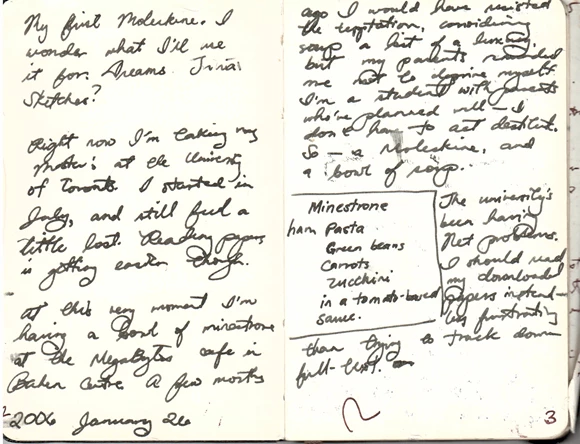 My first Moleskine. I
wonder what I'll use
it for. Dreams. Trivia.
Sketches?
Right now I'm taking my
Master's at the University
of Toronto. I started in
July, and still feel a
little lost. Reading papers
is getting easier though.
At this very moment I'm
having a bowl of minestrone
at the Megabytes cafe in
Bahen Centre. A few months
2006 January 26
ago I would have resisted
the temptation, considering
soup a bit of a luxury
but my parents reminded
me not to deprive myself.
I'm a student with parents
who've planned well - I
don't have to act destitute.
So - a Moleskine, and
a bowl of soup.
Minestrone
ham Pasta
Green beans
Carrots
Zucchini
in a tomato-based
sauce.
The university's
been having
Net problems.
I should read
my downloaded
papers instead -
less frustrating
than trying to track down
full-text.
3